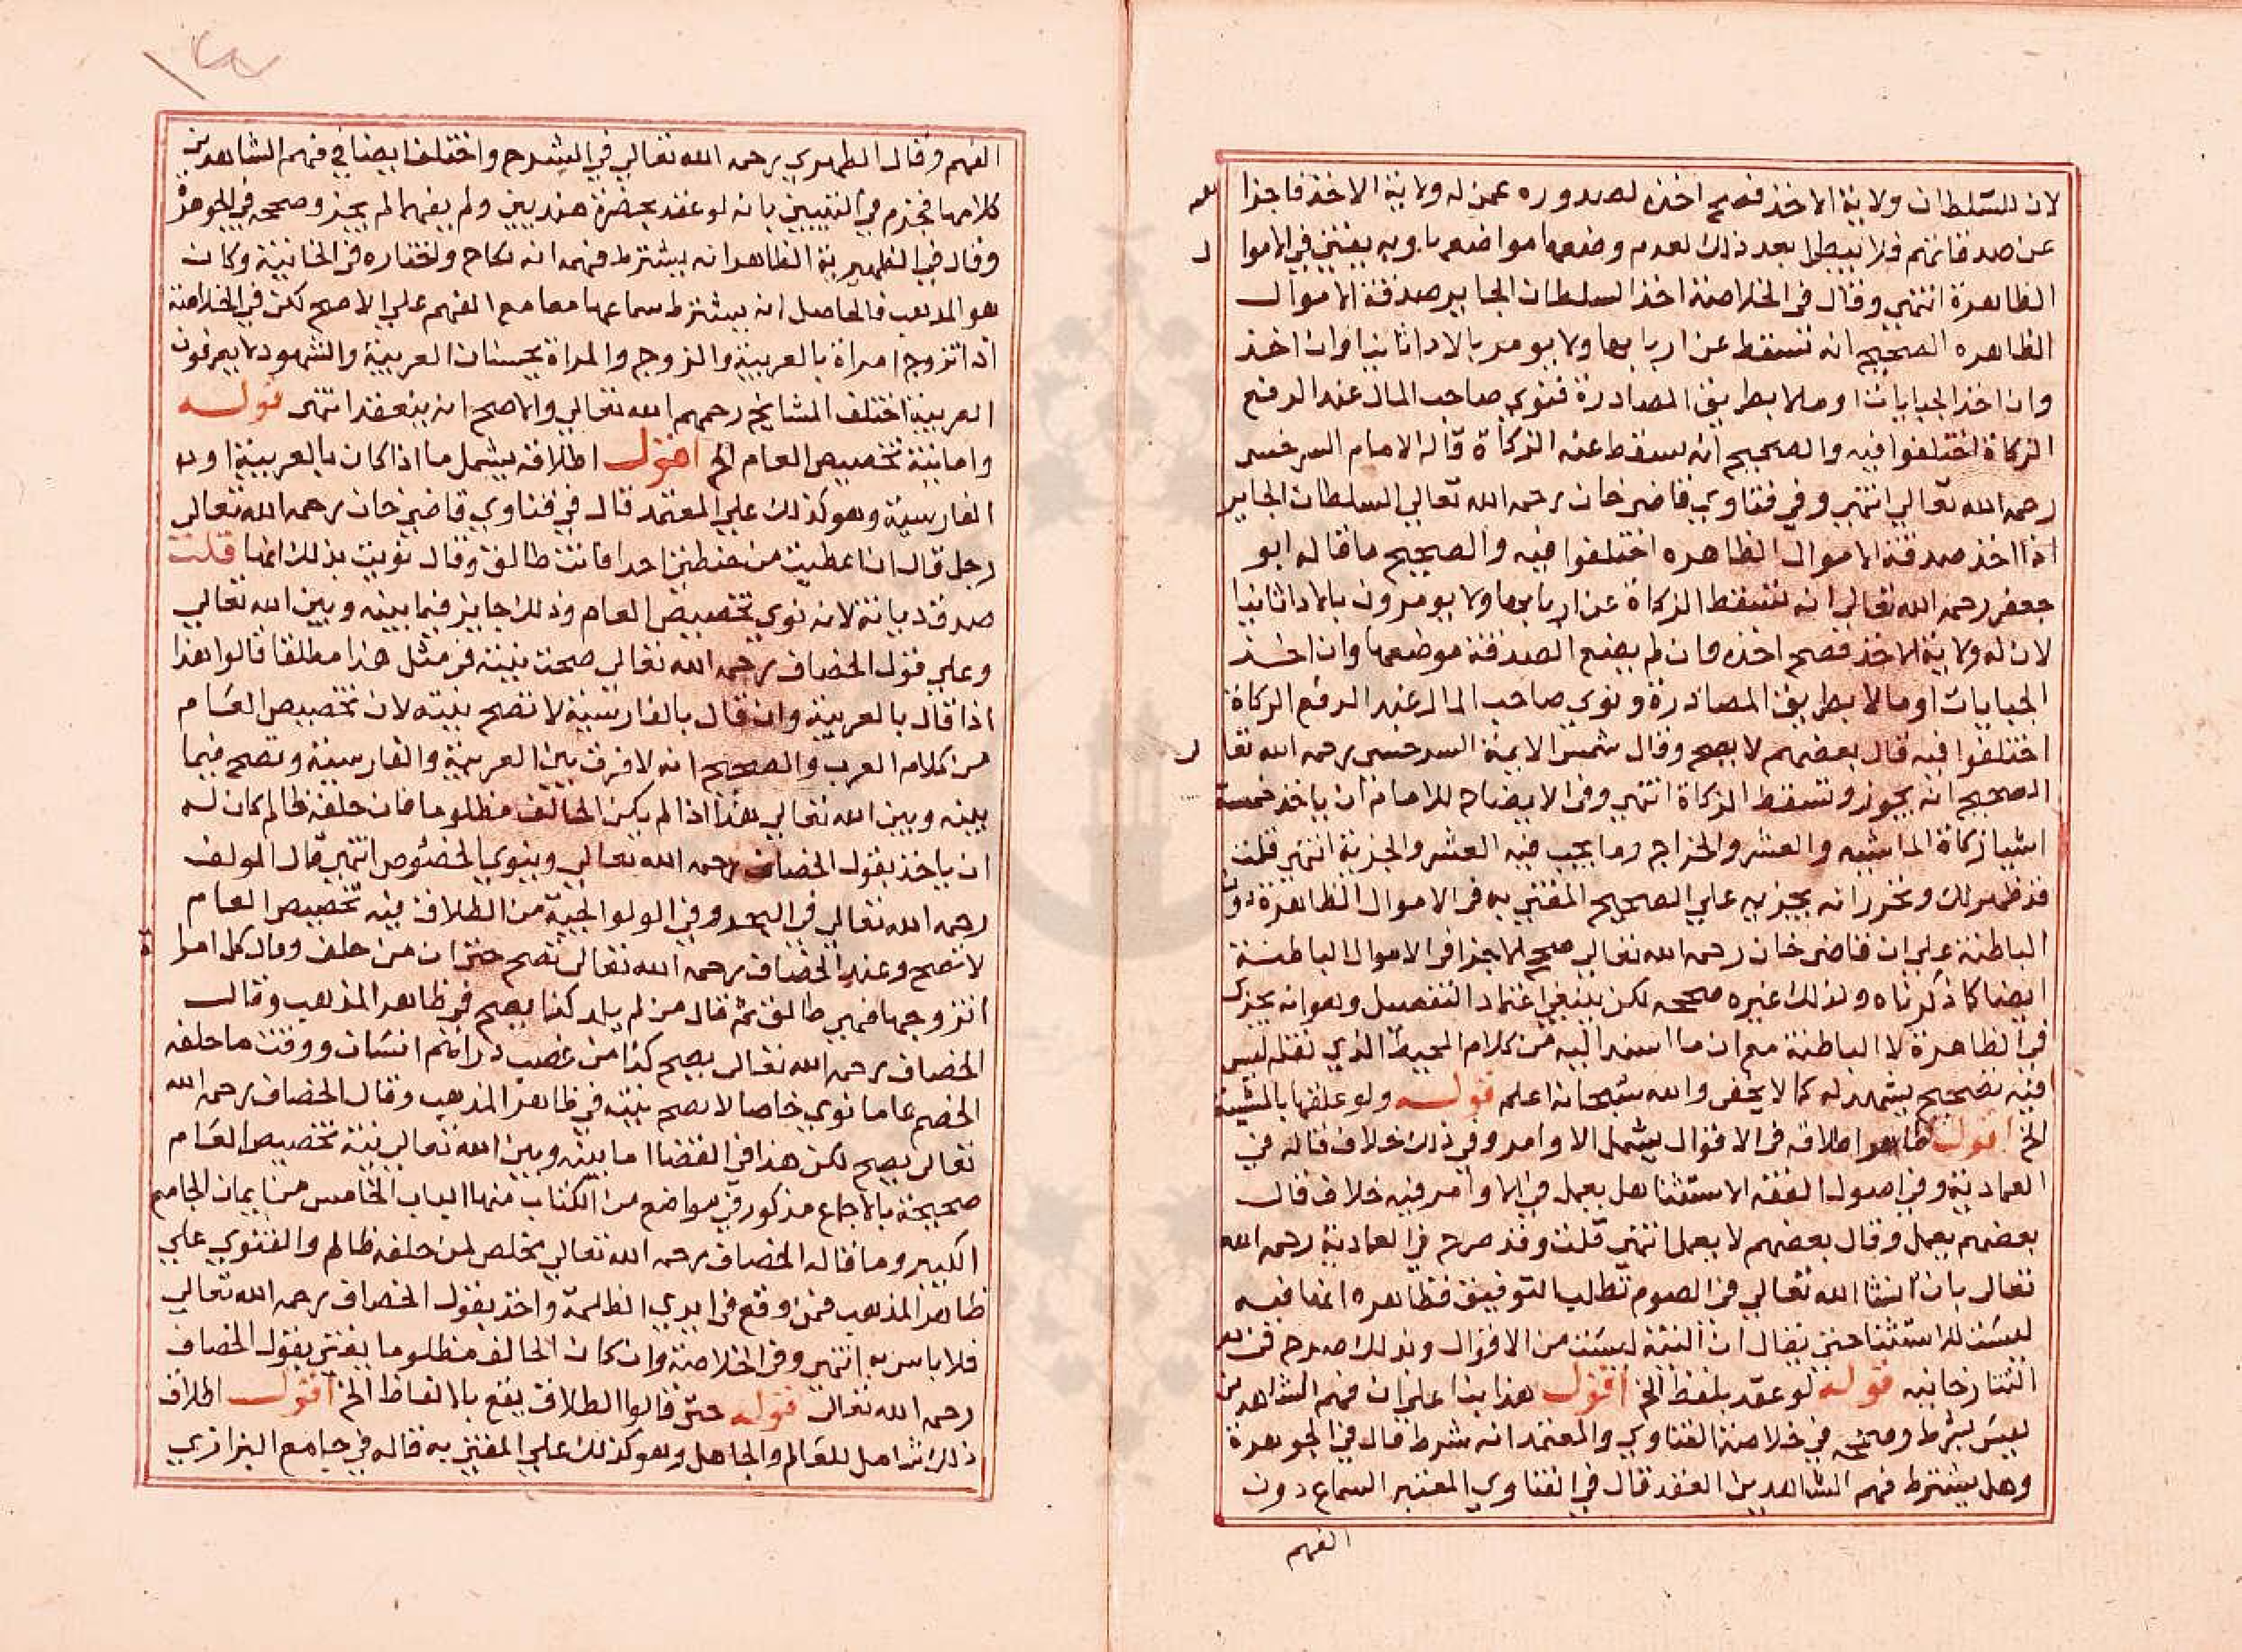 لان للسلطان ولاية الاخذ فصح اخذه لصدوره عمن له ولاية الاخذ فاجزاهم
عن صدقاتهم فلا يبطل بعد ذلك لعدم وضعها مواضعها وبه يفتى في الاموال
الظاهرة انتهى وقال في الخلاصة اخذ السلطان الجاير صدقة الاموال
الظاهره الصحيح انه تسقط عن اربابها ولا يومر بالادا ثانيا وان اخذ
وان اخذ الجبايات او مالا بطريق المصادرة فنوى صاحب المال عند الدفع
الزكاة اختلفوا فيه والصحيح انه يسقط عنه الزكاة قاله الامام السرخسي
رحمه الله تعالى انتهى وفي فتاوى قاضي خان رحمه الله تعالى السلطان الجاير
اذا اخذ صدقة الاموال الظاهره اختلفوا فيه والصحيح ما قاله ابو
جعفر رحمه الله تعالى انه تسقط الزكاة عن اربابها ولا يومرون بالادا ثانيا
لان له ولاية الاخذ فصح اخذه وان لم يضع الصدقة موضعها وان اخذ
الجبايات او مالا بطريق المصادرة ونوى صاحب المال عند الدفع الزكاة
اختلفوا فيه قال بعضهم لا يصح وقال شمس الايمة السرخسي رحمه الله تعالى
الصحيح انه يجوز وتسقط الزكاة انتهى وفي الايضاح للامام ان ياخذ خمسة
اشيا زكاة الماشيه والعشر والخراج وما يجب فيه العشر والجزية انتهى قلت
قد ظهر لك وتحرر انه يجزيه على الصحيح المفتى به في الاموال الظاهرة دون
الباطنة على ان قاضي خان رحمه الله تعالى صحح الاجزا في الاموال الباطنة
ايضا كما ذكرناه وكذلك غيره صححه لكن ينبغي اعتماد التفصيل وهو انه يجزى
في الظاهرة لا الباطنة مع ان ما استند اليه من كلام المحيط الذي نقله ليس
فيه تصحيح يشهد له كما لا يخفى والله سبحانه اعلم قوله ولو علقها بالمشية
الخ اقول ظاهر اطلاقه في الاقوال يشمل الاوامر وفي ذلك خلاف قاله في
العمادية وفي اصول الفقه الاستثنا هل يعمل في الاوامر فيه خلاف قال
بعضهم يعمل وقال بعضهم لا يعمل انتهى قلت وقد صرح في العمادية رحمه الله
تعالى بان انشا الله تعالى في الصوم تطلب التوفيق فظاهره انها فيه
ليست للاستثنا حتى يقال ان النية ليست من الاقوال وكذلك صرح في
التتارخانيه قوله لو عقد بلفظ الخ اقول هذا بنا على ان فهم الشاهدين
ليس بشرط وصححه في خلاصة الفتاوى والمعتمد انه شرط قال في الجوهرة
وهل يشترط فهم الشاهدين العقد قال في الفتاوي المعتبر السماع دون
الفهم
الفهم وقال الظهيري رحمه الله تعالى في الشرح واختلف ايضا في فهم الشاهدين
كلامهما فجزم في التبيين بانه لو عقد بحضرة هنديين ولم يفهما لم يجز وصححه في الجوهرة
وقال في الظهيرية الظاهر انه يشترط فهم انه نكاح واختاره في الخانية وكان
هو المذهب فالحاصل انه يشترط سماعهما معا مع الفهم على الاصح لكن في الخلاصة
اذا تزوج امراة بالعربية والزوج والمراة يحسنان العربية والشهود لا يعرفون
العربية اختلف المشايخ رحمهم الله تعالى والاصح انه ينعقد انتهى قوله
واما نية تخصيص العام الخ اقول اطلاقه يشمل ما اذا كان بالعربية او
الفارسية وهو كذلك على المعتمد قال في فتاوي قاضي خان رحمه الله تعالى
رجل قال ان اعطيت من حنطتي احدا فانت طالق وقال نويت بذلك امها قلت
صدق ديانة لانه نوى تخصيص العام وذلك جايز فيما بينه وبين الله تعالى
وعلى قول الخصاف رحمه الله تعالى صحت نيته في مثل هذا مطلقا قالوا هذا
اذا قال بالعربية وان قال بالفارسية لا تصح نيته لان تخصيص العام
من كلام العرب والصحيح انه لا فرق بين العربية والفارسية وتصح فيما
بينه وبين الله تعالى هذا اذا لم يكن الحالف مظلوما فان حلفه ظالم كان له
ان ياخذ بقول الخصاف رحمه الله تعالى وينوي الخصوص انتهى قال المولف
رحمه الله تعالى في البحر وفي الولوالجية من الطلاق نية تخصيص العام
لا تصح وعند الخصاف رحمه الله تعالى تصح حتى ان من حلف وقال كل امراة
اتزوجها فهي طالق ثم قال من لم يلد كنا يصح في ظاهر المذهب وقال
الخصاف رحمه الله تعالى يصح كذا من غصب دراهم انسان ووقت ما حلفه
الخصم عاما نوى خاصا لا تصح نيته في ظاهر المذهب وقال الخصاف رحمه الله
تعالى يصح لكن هذا في القضا اما بينه وبين الله تعالى نية تخصيص العام
صحيحة بالاجماع مذكور في مواضع من الكتاب منها الباب الخامس من ايمان الجامع
الكبير وما قاله الخصاف رحمه الله تعالى مخلص لمن حلفه ظالم والفتوى على
ظاهر المذهب فمن وقع في ايدي الظلمة واخذ بقول الخصاف رحمه الله تعالى
فلا باس به انتهى وفي الخلاصة وان كان الحالف مظلوما يفتى بقول الخصاف
رحمه الله تعالى قوله حتى قالوا الطلاق يقع بالالفاظ الخ اقول اطلاق
ذلك شامل للعالم والجاهل وهو كذلك على المفتى به قاله في جامع البزازي